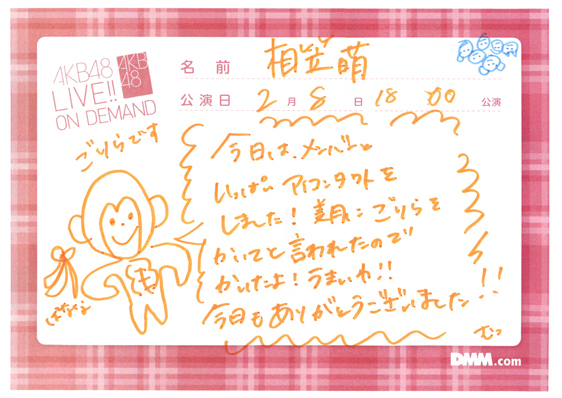 AKB48
LIVE!!
ON DEMAND
AKB
48
名前 相笠萌
公演日 2月8日 18 00 公演
ごりらです
今日は、メンバーと
いっぱい アイコンタクトを
しました！美月にごりらを
かいてと言われたので
かいたよ！うまいわ!!
今日もありがとうございました!!
ばなな
DMM.com